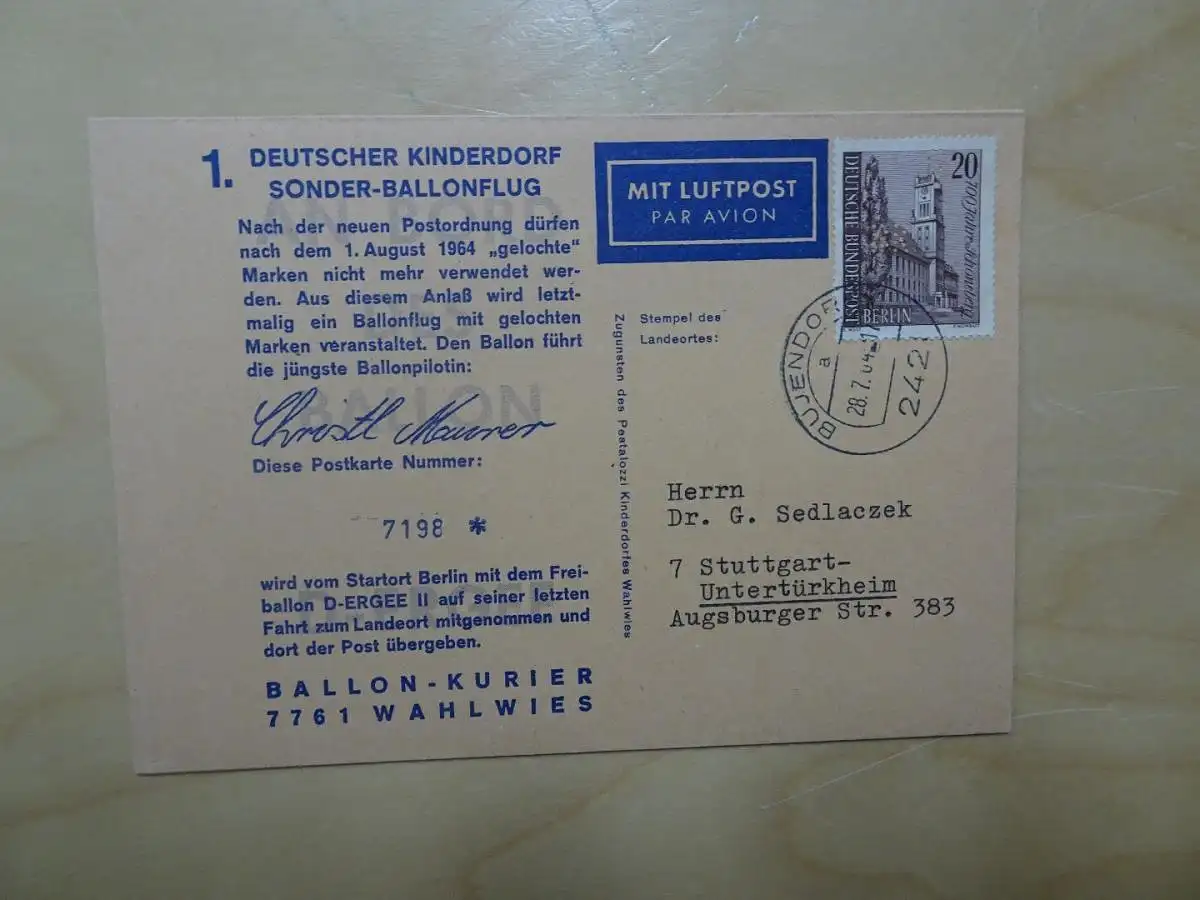 1. DEUTSCHER KINDERDORF
SONDER-BALLONFLUG
Nach der neuen Postordnung dürfen
nach dem 1. August 1964 „gelochte“
Marken nicht mehr verwendet wer-
den. Aus diesem Anlaß wird letzt-
malig ein Ballonflug mit gelochten
Marken veranstaltet. Den Ballon führt
die jüngste Ballonpilotin:
Christl Maurer
Diese Postkarte Nummer:
7198 *
wird vom Startort Berlin mit dem Frei-
ballon D-ERGEE II auf seiner letzten
Fahrt zum Landeort mitgenommen und
dort der Post übergeben.
BALLON-KURIER
7761 WAHLWIES
Zugunsten des Pestalozzi Kinderdorfes Wahlwies
MIT LUFTPOST
PAR AVION
20
700 Jahre Schöneberg
DEUTSCHE BUNDESPOST
BERLIN
Stempel des
Landeortes:
BUJENDORF
a
28.7.64
242
Herrn
Dr. G. Sedlaczek
7 Stuttgart-
Untertürkheim
Augsburger Str. 383
AN BORD
BALLON
D-ERGEE